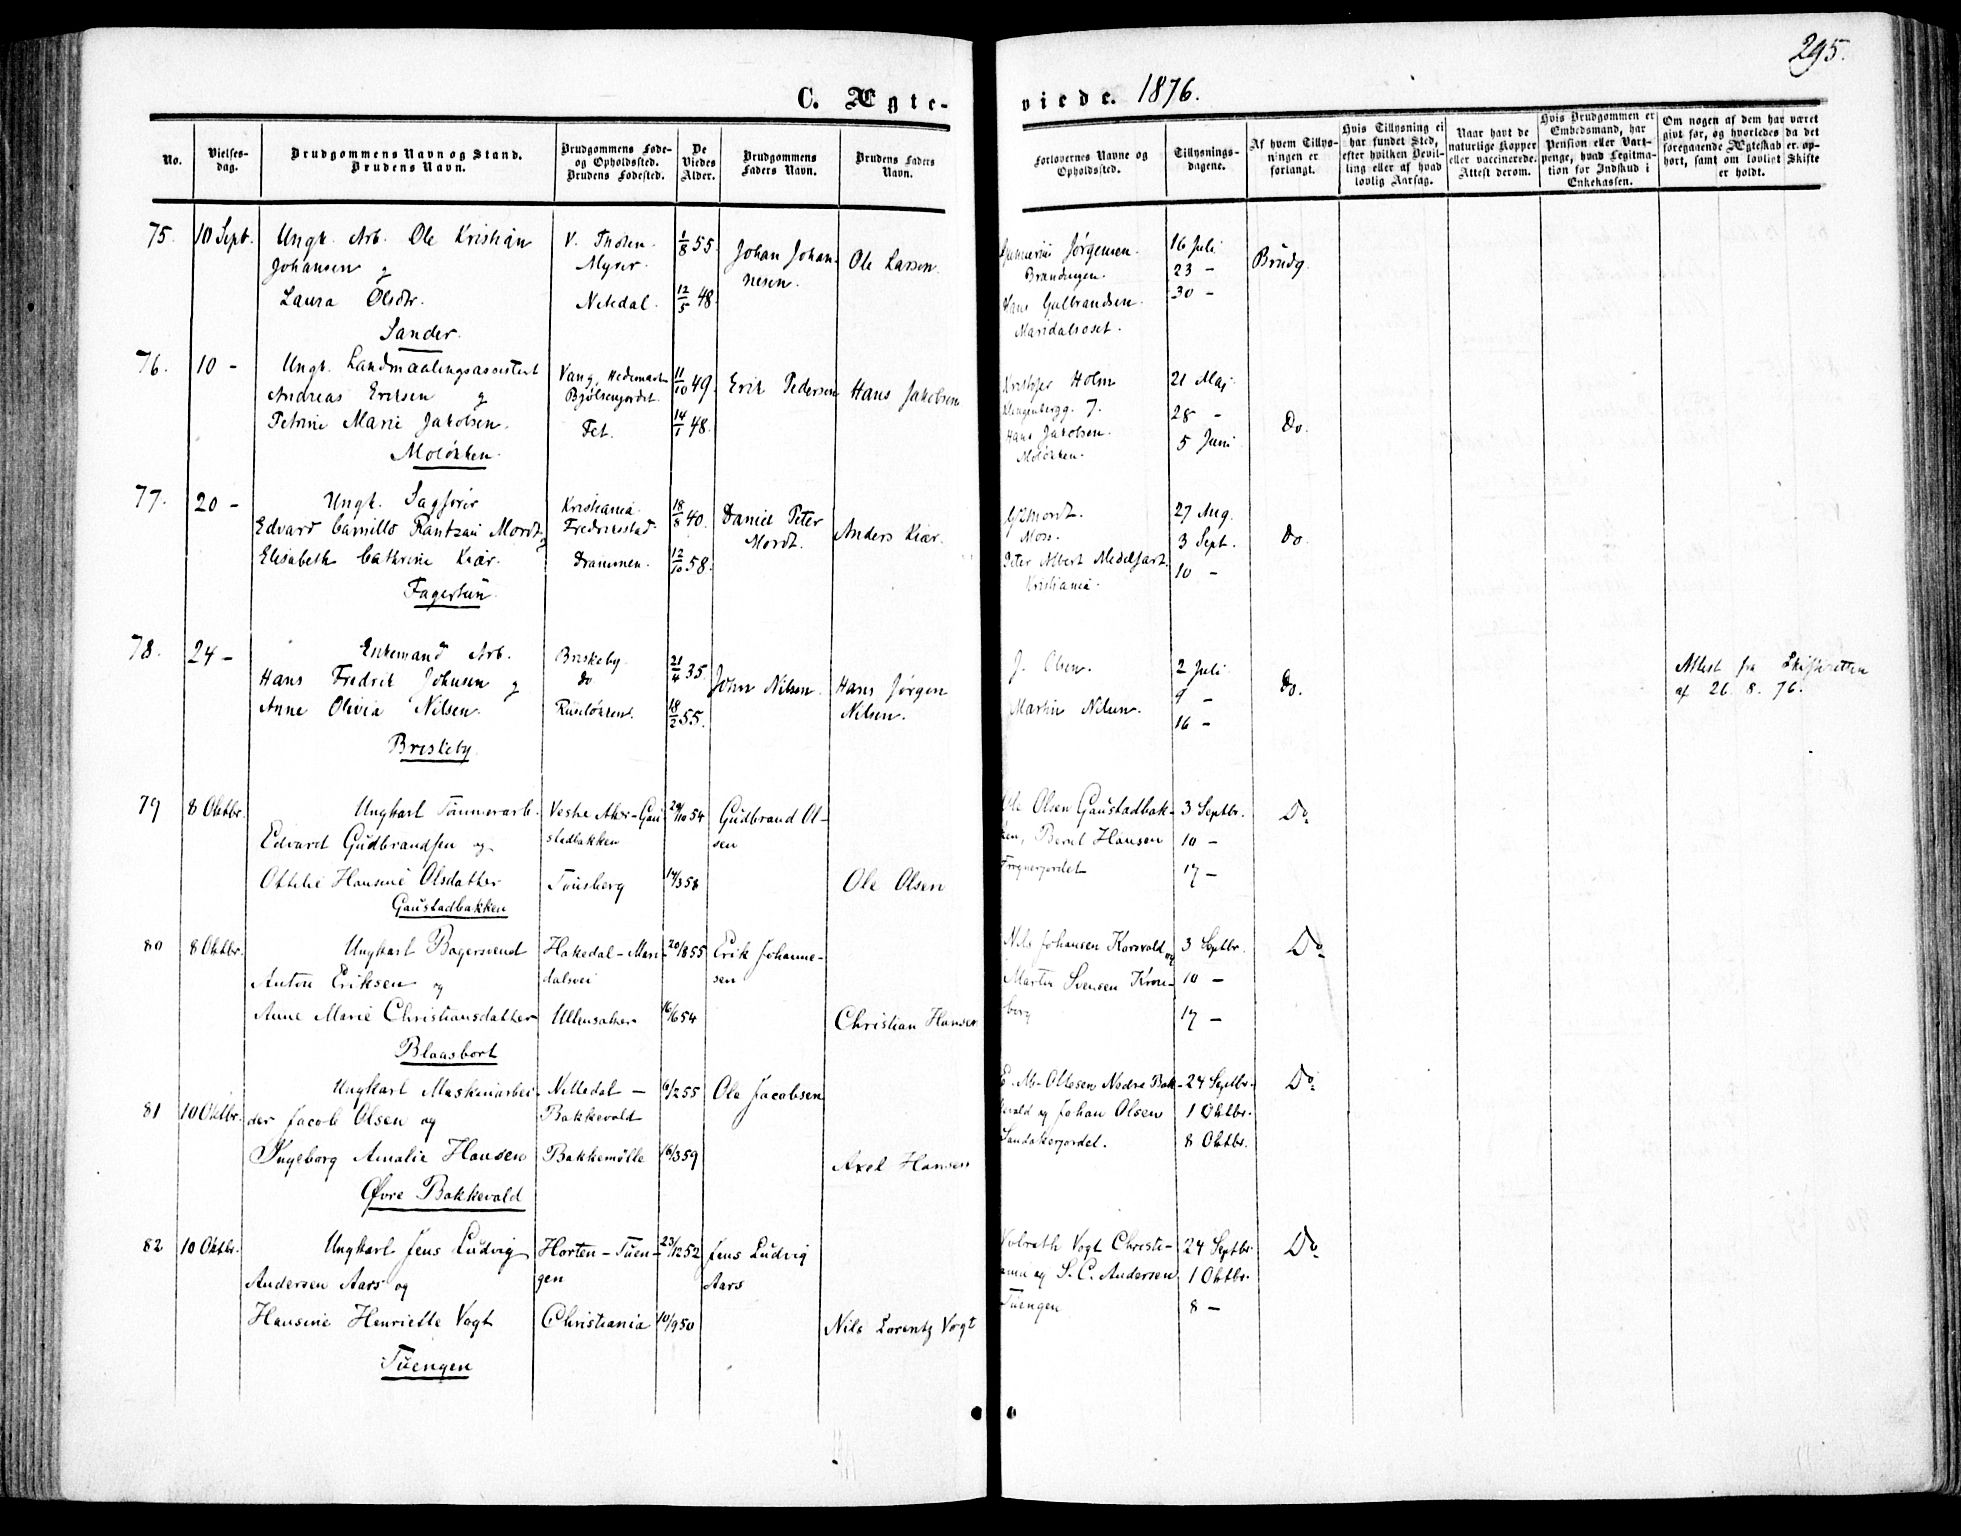 295.
C. Ægte-
viede. 1876.
No.
Vielses-
dag.
Brudgommens Navn og Stand.
Brudens Navn.
Brudgommens Føde-
og Opholdssted.
Brudens Fødested.
De
Viedes
Alder.
Brudgommens
Faders Navn.
Brudens Faders
Navn.
Forlovernes Navne og
Opholdssted.
Tillysnings-
dagene.
Af hvem Tillys-
ningen er
forlangt.
Hvis Tillysning ei
har fundet Sted,
efter hvilken Bevil-
ling eller af hvad
lovlig Aarsag.
Naar havt de
naturlige Kopper
eller vaccinerede.
Attest derom.
Hvis Brudgommen er
Embedsmand, har
Pension eller Vart-
penge, hvad Legitima-
tion for Indskud i
Enkekassen.
Om nogen af dem har været
givt før, og hvorledes da det
foregaaende Ægteskab er op-
hørt, samt om lovligt Skifte
er holdt.
75. 10 Sept. Ungk. Arb. Ole Kristian
Johansen og
Laura Olsdtr.
Sander.
V. Thoten.
Myrer.
Nitedal.
1/8 55.
12/5 48.
Johan Johan-
nesen.
Ole Larsen.
Jørgensen.
Hans Gulbrandsen.
Maridalsoset.
16 Juli
23 -
30 -
Brudg.
76. 10 - Ungk. Landmaalingsassistent
Andreas Eriksen og
Petrine Marie Jakobsen.
Moløkken.
Vang, Hedemark
Bjølsenjordet.
Fet.
11/10 49.
14/1 48.
Erik Pedersen
Hans Jakobsen
Holm
7.
Hans Jakobsen.
Moløkken.
21 Maj
28 -
5 Juni
Do.
77. 20 - Ungk. Sagfører
Edvard Camillo Rantzau Mordt og
Elisabeth Cathrine Kiær.
Fagertun.
Kristiania.
Fredriksstad.
Drammen.
18/8 40.
12/10 58.
Daniel Peter
Mordt.
Anders Kiær.
Mordt.
Moss.
Peter Albert Medelfart.
Kristiania.
27 Aug.
3 Sept.
10 -
Do.
78. 24 - Enkemand Arb.
Hans Fredrik Johnsen og
Anne Olivia Nilsen.
Briskeby.
Briskeby.
do
Ruseløkken.
21/4 35.
18/2 55.
John Nilsen.
Hans Jørgen
Nilsen.
J. Olsen.
Martin Nilsen.
2 Juli
9 -
16 -
Do.
Attest fra Skifteretten
af 26. 8. 76.
79 8 Oktbr. Ungkarl Tømmerarb.
Edvard Gudbrandsen og
Ottilie Hansine Olsdatter
Gaustadbakken
Vestre Aker-Gau-
stadbakken
Tønsberg
29/10 54
14/3 58
Gudbrand Ol-
sen
Ole Olsen
Ole Olsen Gaustadbak-
ken, Bernt Hansen
Frognerjordet
3 Septbr.
10 -
17 -
Do.
80 8 Oktbr. Ungkarl Bagersvend
Anton Eriksen og
Anne Marie Christiansdatter
Blaasbort
Hakedal-Mari-
dalsvei
Ullensaker
20/8 55
16/6 54
Erik Johanne-
sen
Christian Hansen
Nils Johansen Korsvold og
Martin Svensen Kron-
berg
3 Septbr.
10 -
17 -
Do.
81 10 Oktbr. Ungkarl Maskinarbei-
der Jacob Olsen og
Ingeborg Amalie Hansen
Øvre Bakkevold
Nittedal -
Bakkevold
Bakkemølle
6/2 55
16/3 59
Ole Jacobsen
Axel Hansen
E. M. Ottesen Nedre Bak-
kevold og Johan Olsen
Sandakerjordet.
24 Septbr.
1 Oktbr.
8 Oktbr.
Do.
82 10 Oktbr. Ungkarl Jens Ludvig
Andersen Aars og
Hansine Henriette Vogt
Tuengen
Horten-Tuen-
gen
Christiania
23/12 52
10/9 50
Jens Ludvig
Aars
Nils Lorentz Vogt
Volrath Vogt Christi-
ania og S. C. Andersen
Tuengen
24 Septbr.
1 Oktbr.
8 -
Do.